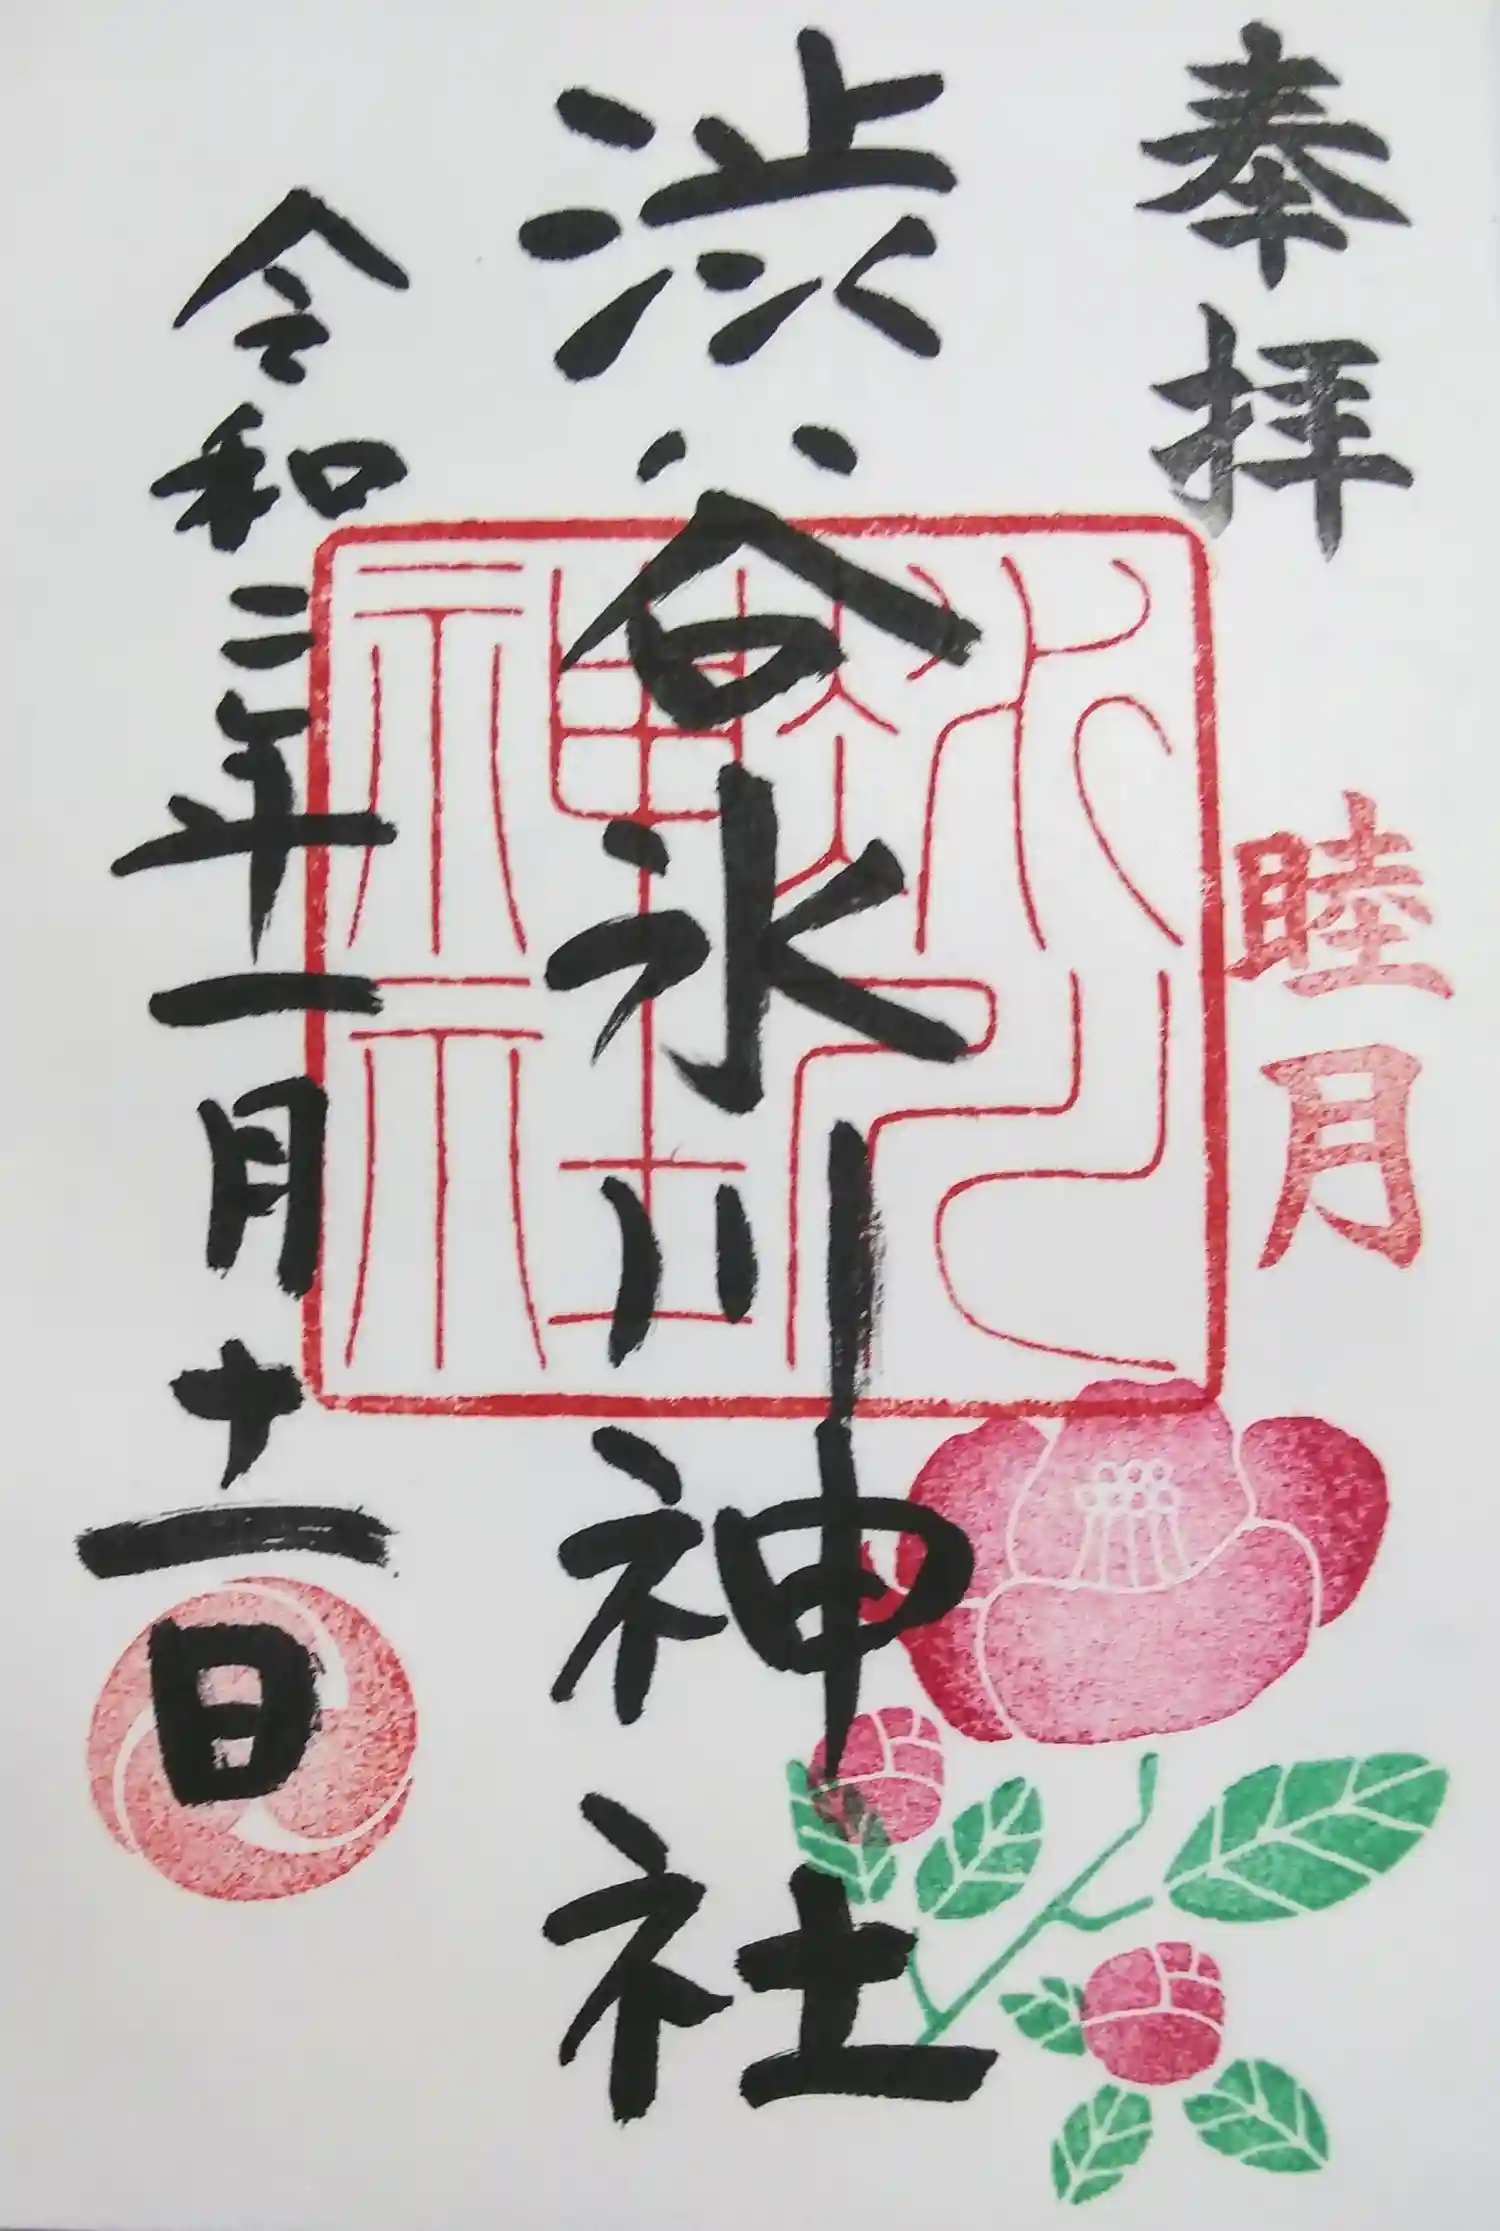 奉拝
睦月
渋谷氷川神社
氷川神社
令和二年一月十一日